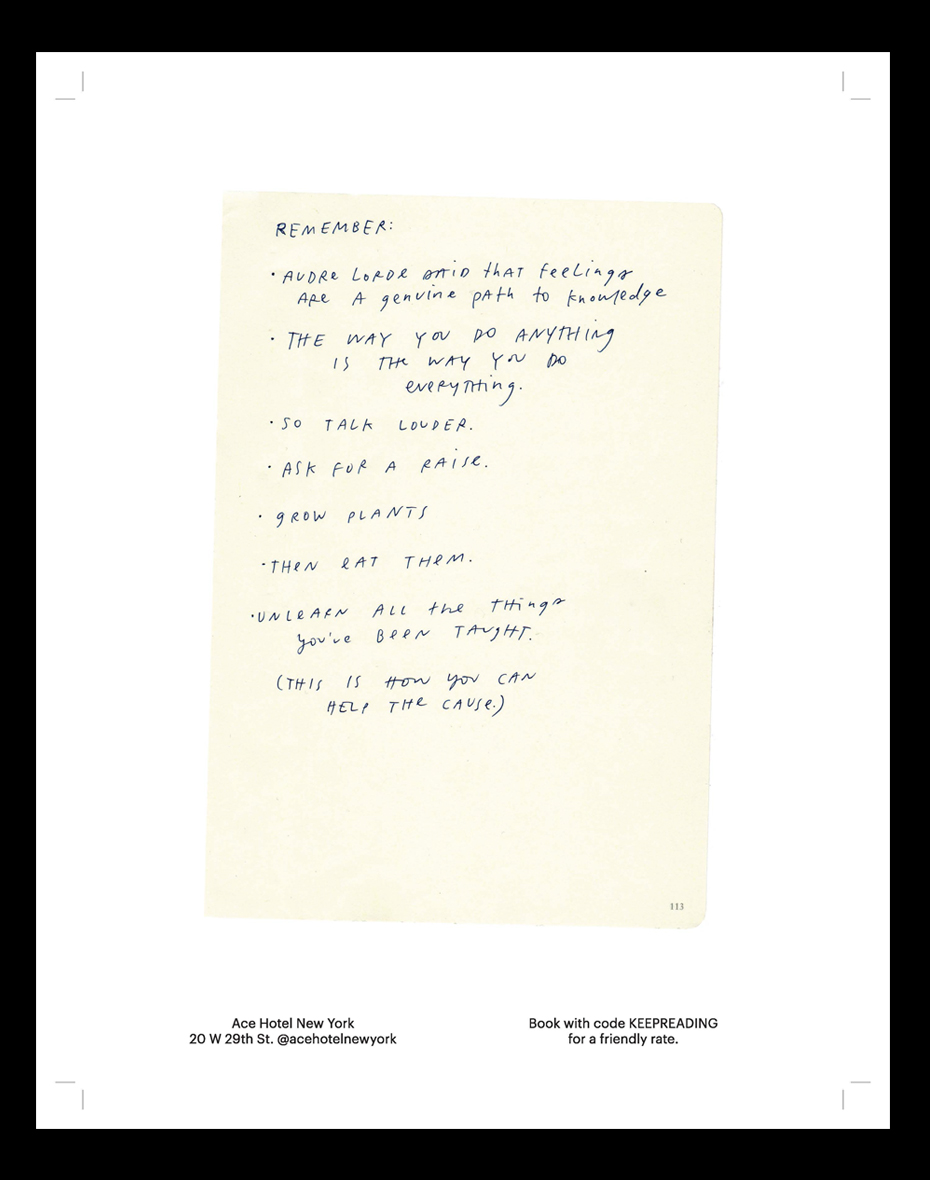 REMEMBER:
· AUDRe LORDe SAID thAT feelings
ARe A genuine pATh to knowledge
· THE WAY YOU DO ANYTHING
IS THe WAY YOU DO
eveRyTHing.
· SO TALK LOUDER.
· ASK FOR A RAISe.
· gROW PLANTS
· THeN eAT THeM.
· UNLeARN ALL the THings
you've BeeN TAUgHT.
(THIS IS HOW YOU CAN
HELP THe CAUSe.)
113
Ace Hotel New York
20 W 29th St. @acehotelnewyork
Book with code KEEPREADING
for a friendly rate.